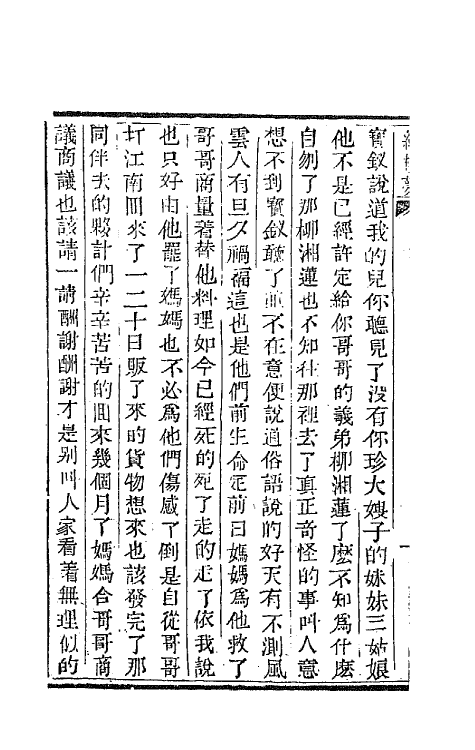 紅樓夢
寶釵說道我的兒你聽見了沒有你珍大嫂子的妹妹三姑娘
他不是已經許定給你哥哥的義弟柳湘蓮了麽不知爲什麽
自刎了那柳湘蓮也不知往那裡去了真正竒怪的事叫人意
想不到寶釵聽了並不在意便說道俗語說的好天有不測風
雲人有旦夕禍福這也是他們前生命定前日媽媽爲他救了
哥哥商量着替他料理如今已經死的死了走的走了依我說
也只好由他罷了媽媽也不必爲他們傷感了倒是自從哥哥
打江南囬來了一二十日販了來的貨物想來也該發完了那
同伴去的夥計們辛辛苦苦的囬來幾個月了媽媽合哥哥商
議商議也該請一請酬謝酬謝才是别叫人家看着無理似的